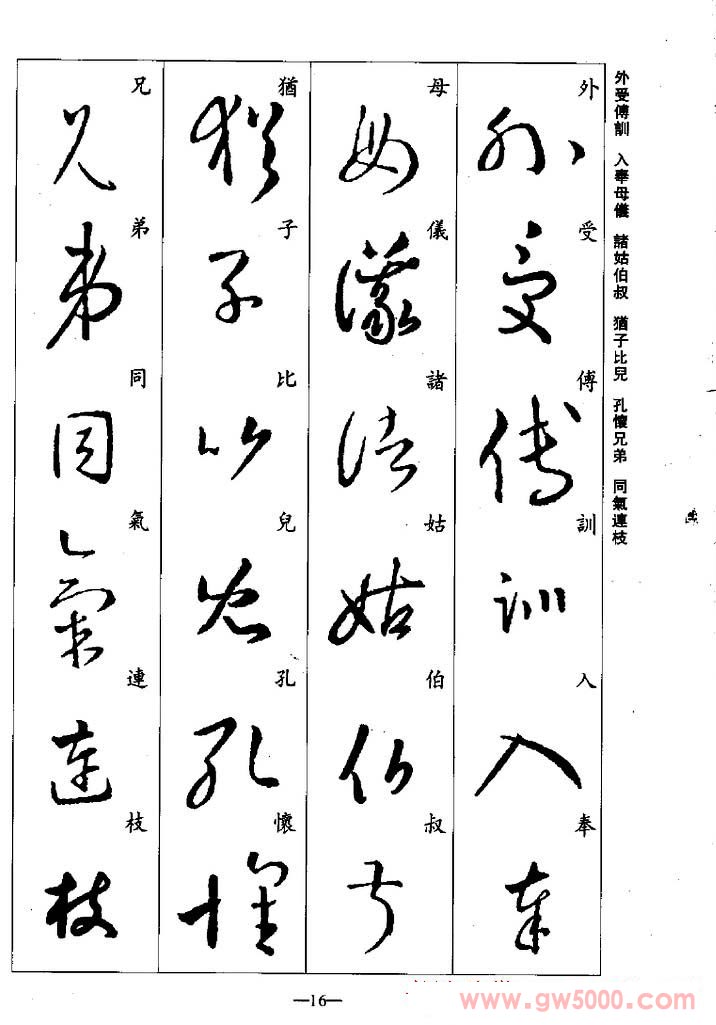 外受傅訓 入奉母儀 諸姑伯叔 猶子比兒 孔懷兄弟 同氣連枝
外受傅訓入奉
母儀諸姑伯叔
猶子比兒孔懷
兄弟同氣連枝
—16—
www.gw5000.com